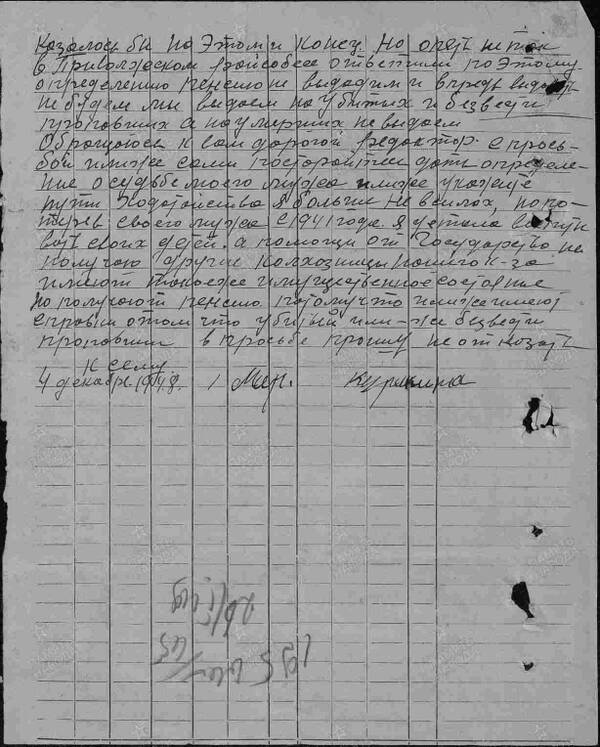 Казалось бы на этом и конец. Но опять не так
в Приволжском райсобесе ответили по этому
определению пенсию не выдадим и впредь выдавать
не будем мы выдаем на убитых и безвести
пропавших а на умерших не выдаем
Обращаюсь к вам дорогой редактор с прось-
бой или же сами постарайтесь дать определе-
ние о судьбе моего мужа или же укажите
пути ходатайства я больше не в силох, по по-
теряв своего мужа с 1941 года. Я устала воспиты
вать своих детей. а помощи от Государства не
получаю другие колхозницы нашего к-за
имеют токое же имущественное состояние
но получают пенсию потому что или же имеют
справки о том что убитый или-же безвести
пропавший в просьбе прошу не отказать
К сему
4 декабря 1948. 1 Мар. Куркина